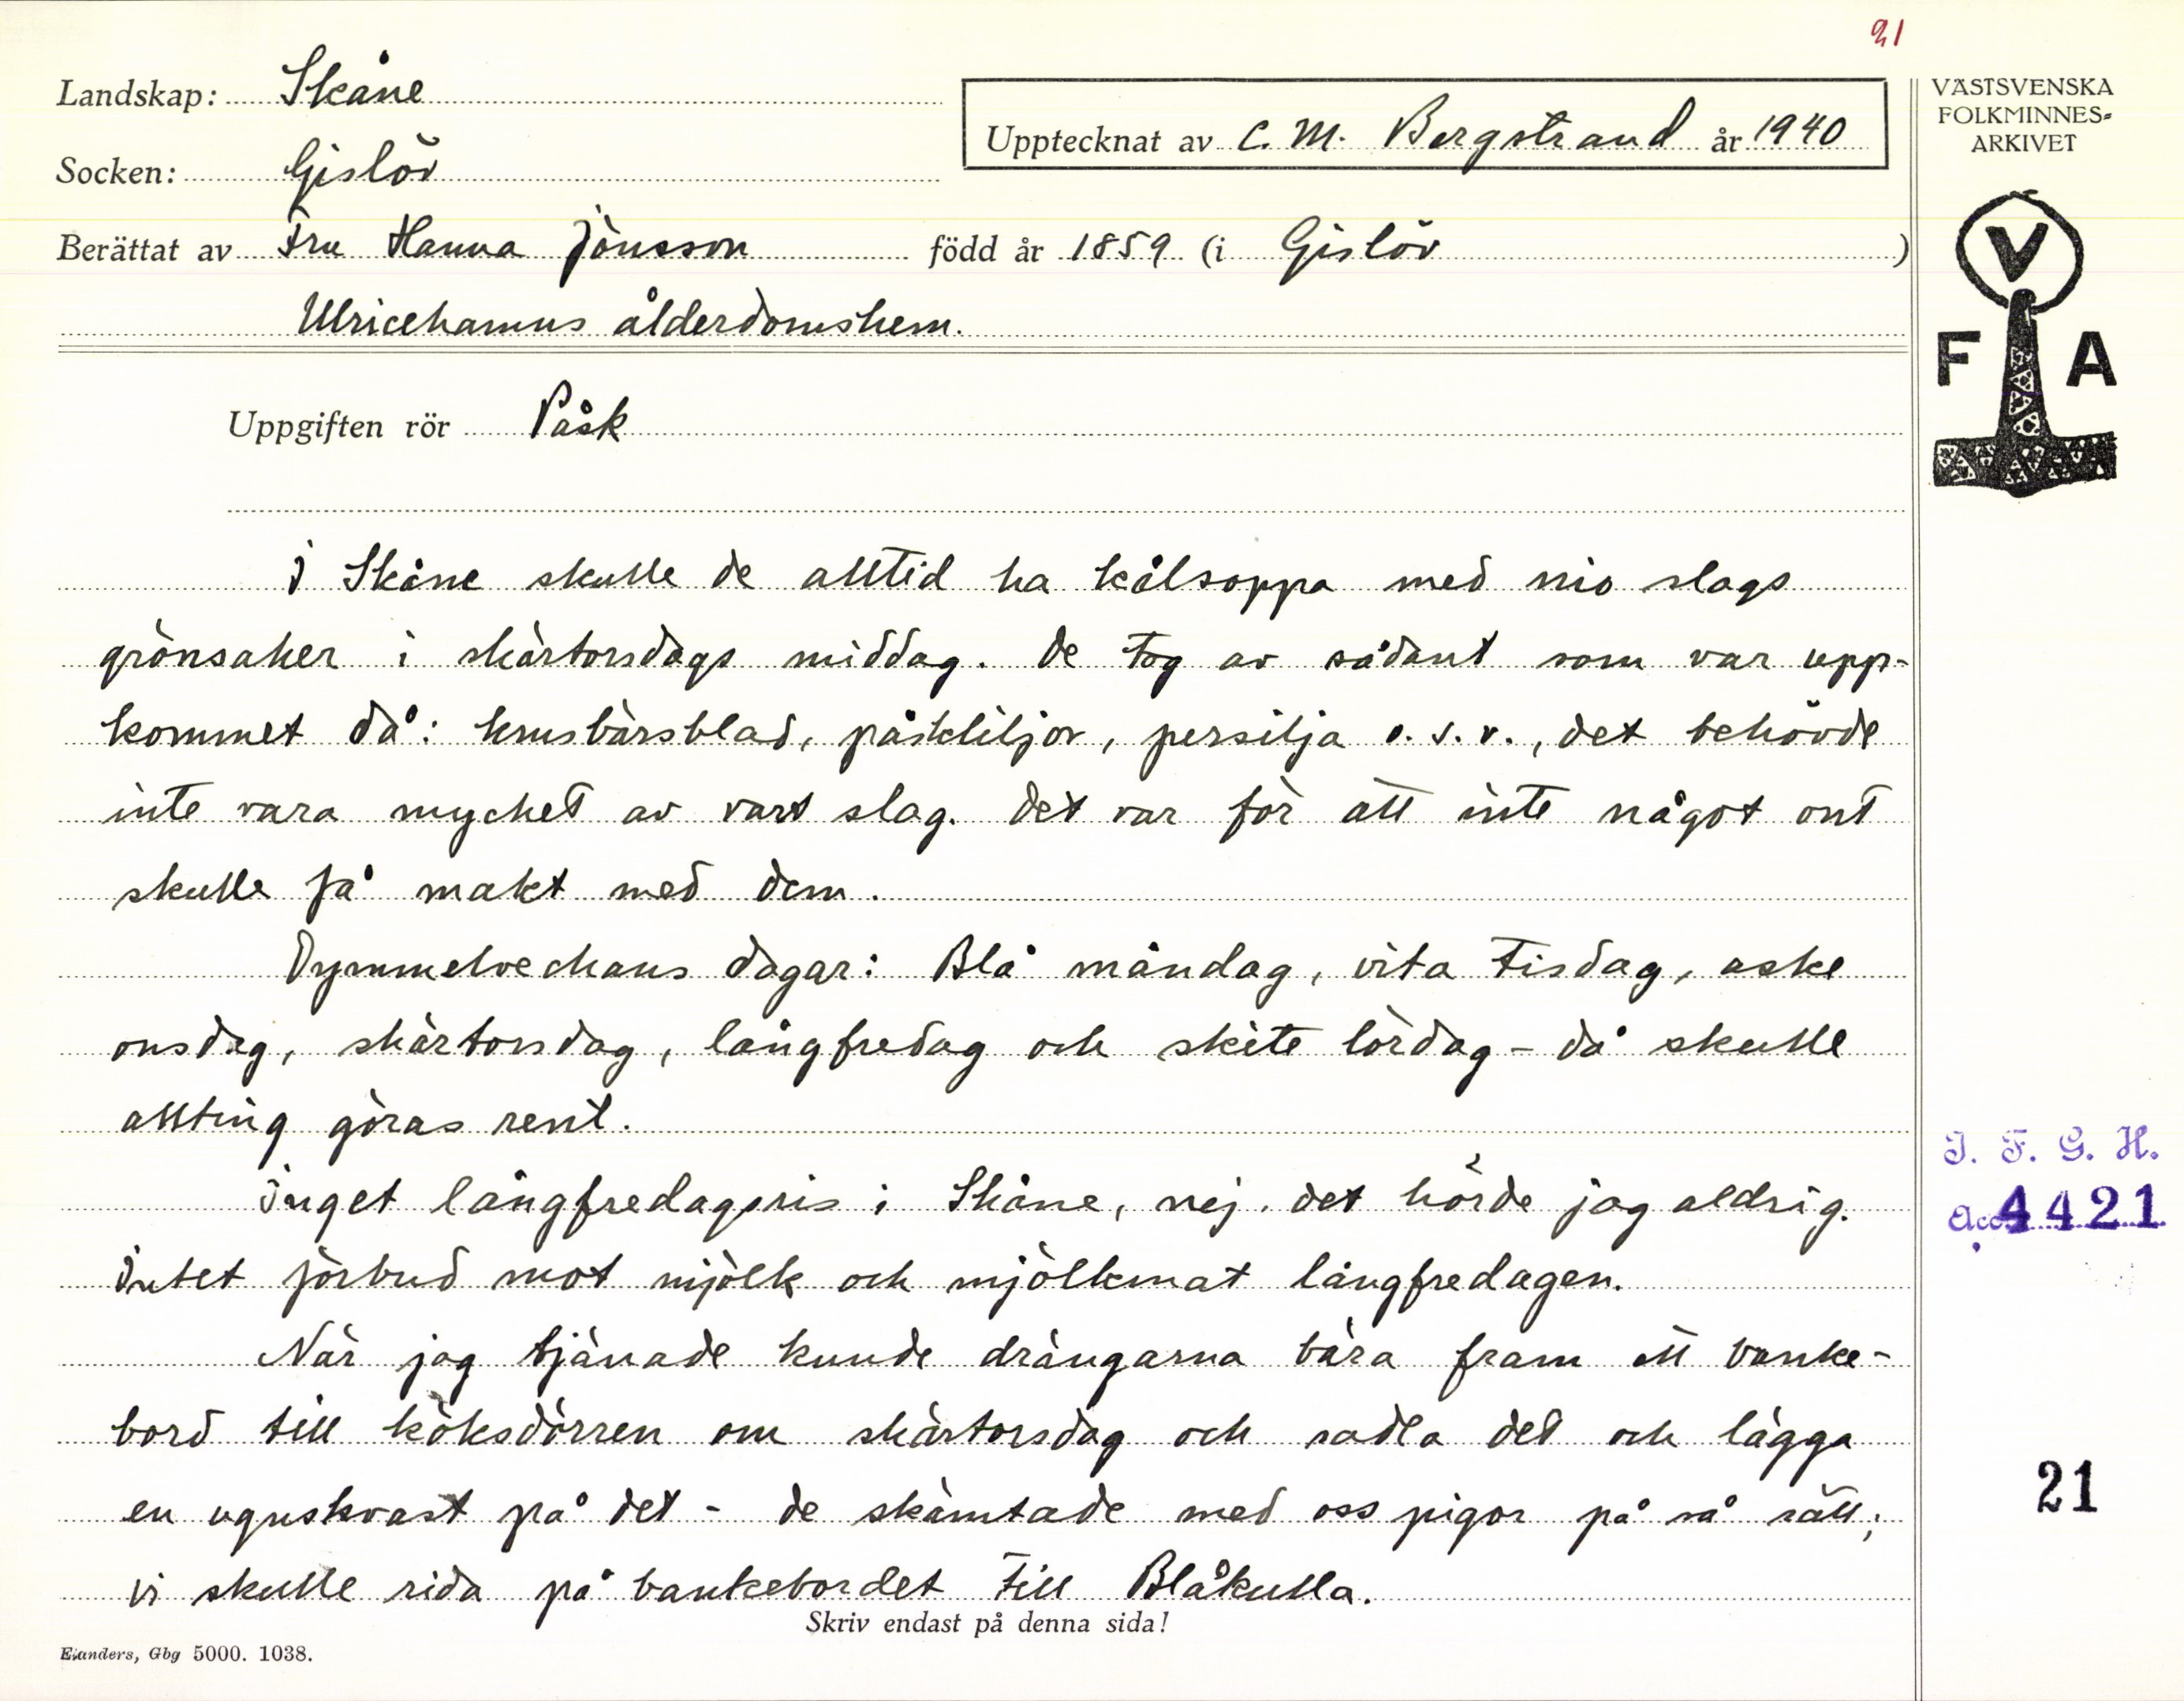 21
Landskap: Skåne
Upptecknat av C. M. Bergstrand år 1940
Socken: Gislöv
Berättat av Fru Hanna Jönsson född år 1859 (i Gislöv)
Ulricehamns ålderdomshem.
Uppgiften rör Påsk
I Skåne skulle de alltid ha kålsoppa med nio slags
grönsaker i skärtorsdags middag. De tog av sådant som var upp-
kommet då: krusbärsblad, påskliljor, persilja o.s.v., det behövde
inte vara mycket av vart slag. Det var för att inte något ont
skulle få makt med dem.
Dymmelvechans dagar: Blå måndag, vita tisdag, aske
onsdag, skärtorsdag, långfredag och skite lördag – då skulle
allting göras rent.
Inget långfredagsris i Skåne, nej. det hörde jag aldrig.
Intet förbud mot mjölk och mjölkmat långfredagen.
När jag tjänade kunde drängarna bära fram ett banke-
bord till köksdörren om skärtorsdag och sadla det och lägga
en ugnskvast på det – de skämtade med oss pigor på så sätt;
vi skulle rida på bankebordet till Blåkulla.
Skriv endast på denna sida!
Elanders, Gbg 5000. 1038.
VÄSTSVENSKA
FOLKMINNES-
ARKIVET
V
F A
I. F. G. H.
Acc. 4421
21